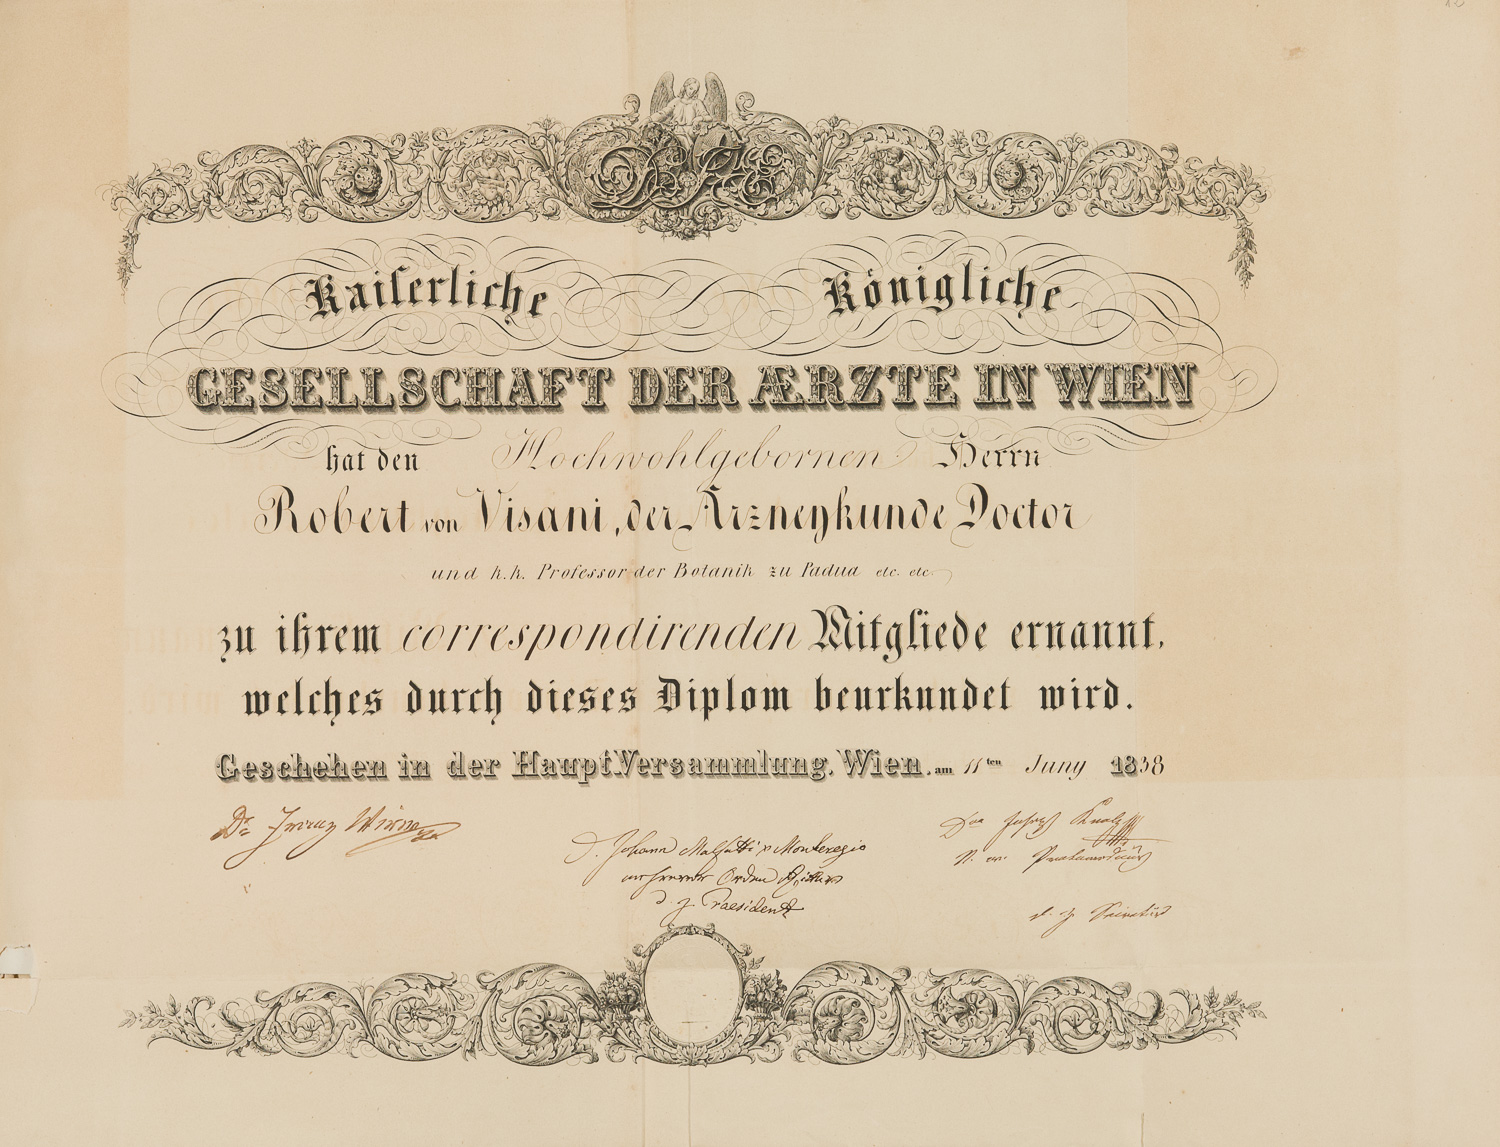 Kaiserliche Königliche
GESELLSCHAFT DER ÆRZTE IN WIEN
hat den Hochwohlgebornen Herrn
Robert von Visani, der Arzneykunde Doctor
und k. k. Professor der Botanik zu Padua etc. etc.
zu ihrem correspondirenden Mitgliede ernannt,
welches durch dieses Diplom beurkundet wird.
Geschehen in der Haupt.Versammlung. Wien. am 11ten Juny 1838
Dr Franz Wirer
D. Johann Malfatti v Monteregio
Orden Ritter
d. z. Praesident
d. z. Secretär